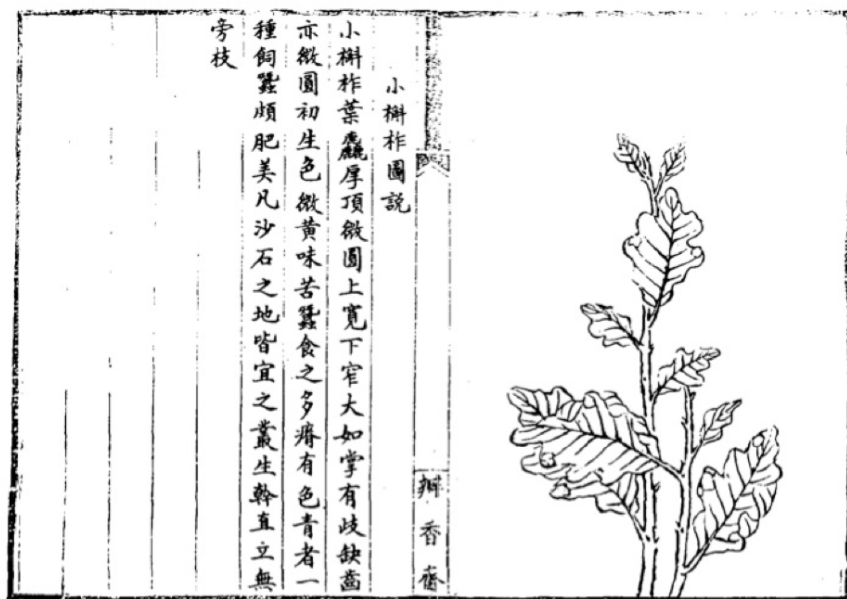 小槲柞圖說
小槲柞葉麤厚頂微圓上寬下窄大如掌有歧缺齒
亦微圓初生色微黃味苦蠶食之多瘠有色青者一
種飼蠶頗肥美凡沙石之地皆宜之叢生幹直立無
旁枝
辦香齋